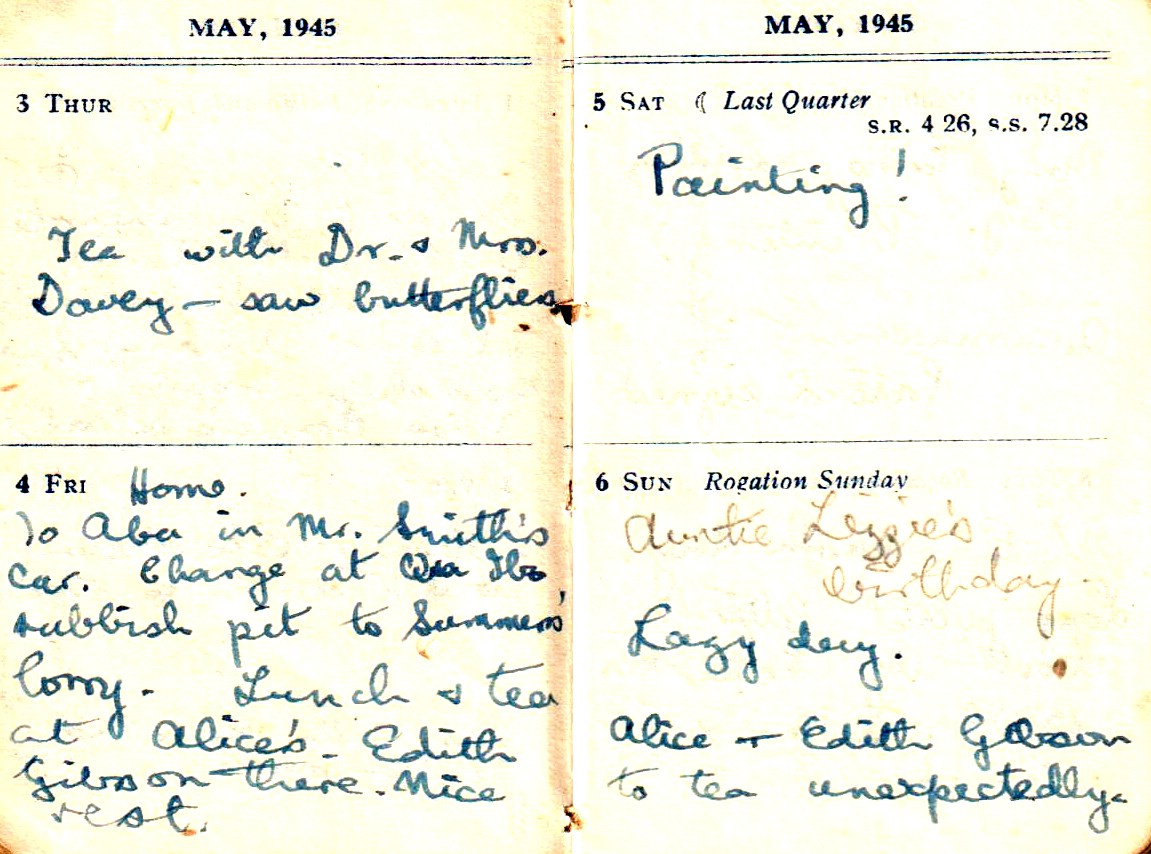 MAY, 1945
3 THUR
Tea with Dr. & Mrs.
Davey – saw butterflies
4 FRI Home.
To Aba in Mr. Smith's
car. Change at
rubbish pit to Summers'
lorry. Lunch & tea
at Alice's. Edith
Gibson there. Nice
rest.
MAY, 1945
5 SAT ☾ Last Quarter
S.R. 4 26, S.S. 7.28
Painting!
6 SUN Rogation Sunday
Auntie Lizzie's
birthday.
Lazy day.
Alice + Edith Gibson
to tea unexpectedly.